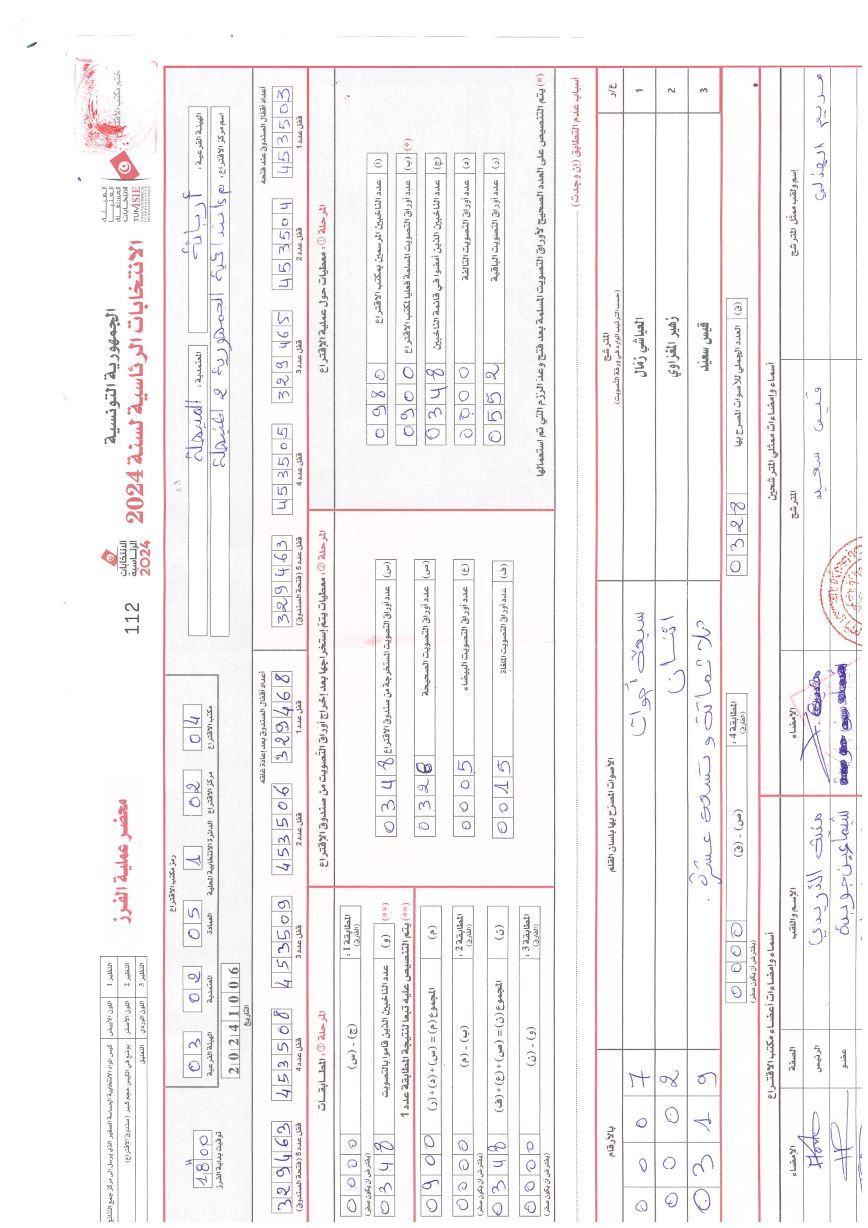 ختم مكتب الاقتراع
الهيئة
العليا
المستقلة
للانتخابات
TUNISIE
الجمهورية التونسية
الانتخابات الرئاسية لسنة 2024
الانتخابات
الرئاسية
2024
112
محضر عملية الفرز
النظير 1 اللون الأبيض
النظير 2 اللون الأصفر يوضع في الكيس حجم كبير (صندوق الاقتراع)
النظير 3 اللون الوردي التعليق
الهيئة الفرعية : أريانة
المعتمدية : المنيهلة
اسم مركز الاقتراع :
رمز مكتب الاقتراع
03 02 05 1 02 04
الهيئة الفرعية المعتمدية العمادة الدائرة الانتخابية المحلية مركز الاقتراع مكتب الاقتراع
20241006
التاريخ
18 H 00
توقيت بداية الفرز
أعداد أقفال الصندوق عند فتحه
453503 453504 329465 453505 329463
قفل عدد 1 قفل عدد 2 قفل عدد 3 قفل عدد 4 قفل عدد 5 (فتحة الصندوق)
أعداد أقفال الصندوق بعد إعادة غلقه
329468 453506 453509 453508 329463
قفل عدد 1 قفل عدد 2 قفل عدد 3 قفل عدد 4 قفل عدد 5 (فتحة الصندوق)
المرحلة ① : معطيات حول عملية الاقتراع
(أ) عدد الناخبين المرسمين بمكتب الاقتراع 0980
(ب) عدد أوراق التصويت المسلمة فعليا لمكتب الاقتراع (*) 0900
(ج) عدد الناخبين الذين أمضوا في قائمة الناخبين 0348
(د) عدد أوراق التصويت التالفة 0000
(ر) عدد أوراق التصويت الباقية 0552
(*) يتم التنصيص على العدد الصحيح لأوراق التصويت المسلمة بعد فتح وعد الرزم التي تم استعمالها
المرحلة ② : معطيات يتم استخراجها بعد إخراج أوراق التصويت من صندوق الاقتراع
(س) عدد أوراق التصويت المستخرجة من صندوق الاقتراع 0348
(ص) عدد أوراق التصويت الصحيحة 0328
(ع) عدد أوراق التصويت البيضاء 0005
(ف) عدد أوراق التصويت الملغاة 0015
المرحلة ③ : المطابقات
المطابقة 1 : (الفارق) (ج) - (س) 0000 (يفترض أن يكون صفر)
(**) (و) عدد الناخبين الذين قاموا بالتصويت 0348
(**) يتم التنصيص عليه تبعا لنتيجة المطابقة عدد 1
(م) المجموع (م) = (س)+(د)+(ر) 0900
المطابقة 2 : (الفارق) (ب) - (م) 0000 (يفترض أن يكون صفر)
(ن) المجموع (ن) = (ص)+(ع)+(ف) 0348
المطابقة 3 : (الفارق) (و) - (ن) 0000 (يفترض أن يكون صفر)
أسباب عدم التطابق (إن وجدت)
ع/ر المترشح (حسب الترتيب الوارد في ورقة التصويت) الأصوات المصرّح بها بلسان القلم بالأرقام
1 العياشي زمال سبعة أصوات 0007
2 زهير المغزاوي اثنان 0002
3 قيس سعيد ثلاثمائة وتسعة عشرة 0319
(ق) العدد الجملي للأصوات المصرح بها 0328
المطابقة 4 : (الفارق) (ص) - (ق) 0000 (يفترض أن يكون صفر)
أسماء وإمضاءات ممثلي المترشحين
إسم ولقب ممثل المترشح المترشح الامضاء
قيس سعيد
أسماء وإمضاءات أعضاء مكتب الاقتراع
الإسم واللقب الصفة الامضاء
الرئيس
عضو